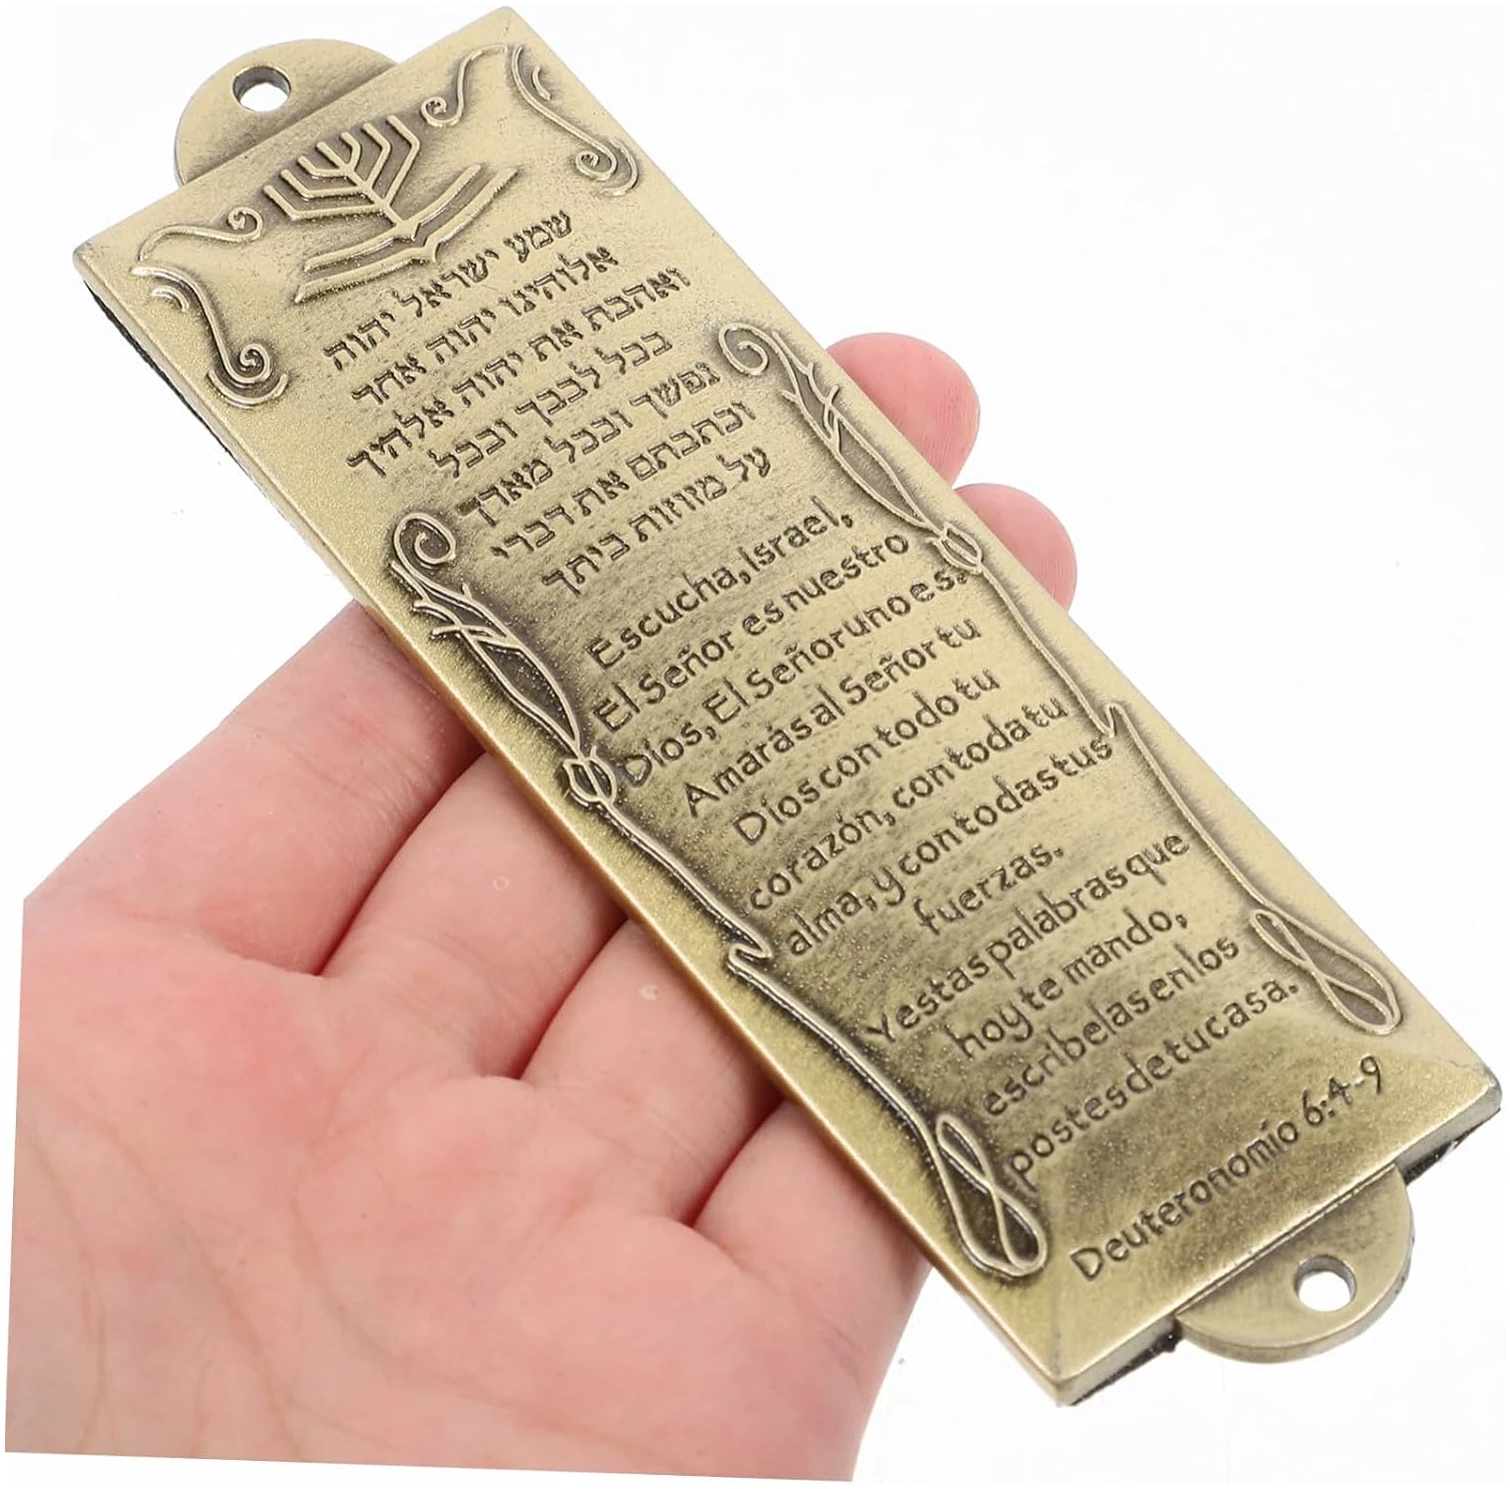 שמע ישראל יהוה
אלוהינו יהוה אחד
ואהבת את יהוה אלהיך
בכל לבבך ובכל
נפשך ובכל מארך
וכתבתם את דברי
על מזוזות ביתך
Escucha, Israel,
El Señor es nuestro
Dios, El Señor uno es.
Amarás al Señor tu
Dios con todo tu
corazón, con toda tu
alma, y con todas tus
fuerzas.
Y estas palabras que
hoy te mando,
escríbelas en los
postes de tu casa.
Deuteronomio 6:4-9